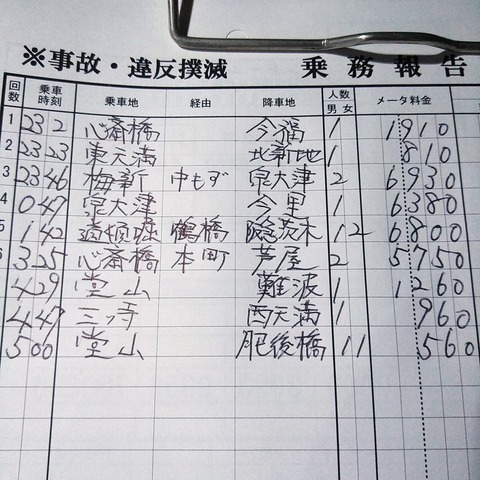 ※事故・違反撲滅 乗務報告
回数 乗車時刻 乗車地 経由 降車地 人数 男 女 メータ料金
1 23 2 心斎橋 今福 1 1910
2 23 23 東天満 北新地 1 810
3 23 46 梅新 中もず 泉大津 2 6930
4 0 47 泉大津 今里 1 6380
5 1 42 道頓堀 鶴橋 茨木 1 2 6800
6 3 25 心斎橋 本町 芦屋 2 5750
4 29 堂山 難波 1 1260
4 47 三ッ寺 西天満 1 960
5 00 堂山 肥後橋 1 1 560